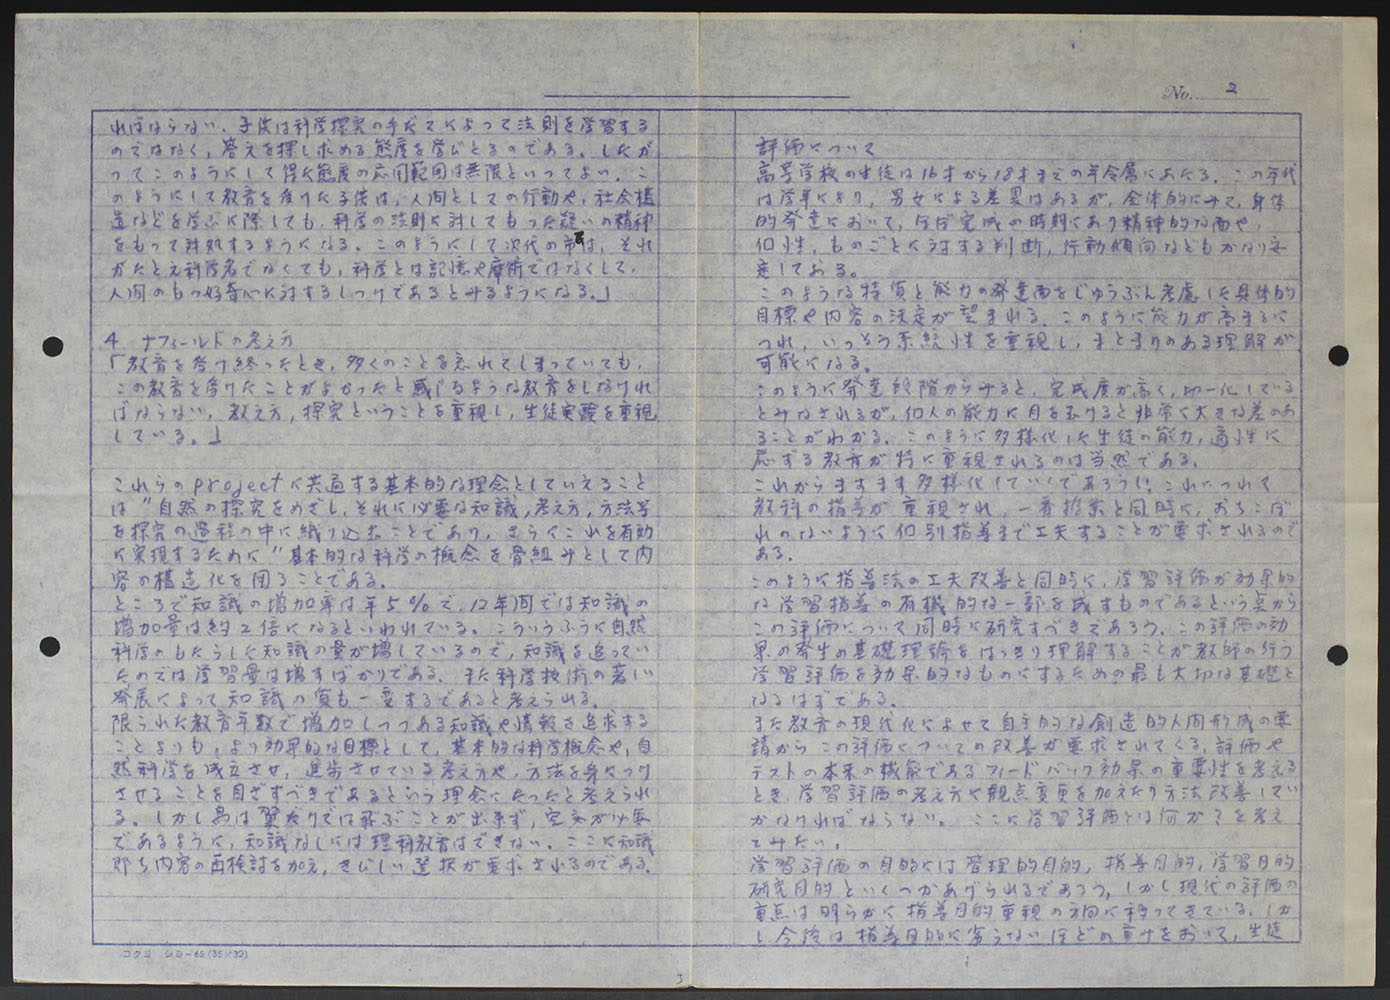 No. 2
ればならない。子供は科学探究の手だてによって法則を学習する
のではなく，答えを探し求める態度を学びとるのである。したが
ってこのようにして得た態度の応用範囲は無限といってよい。こ
のようにして教育を受けた子供は，人間としての行動や，社会構
造などを学ぶに際しても，科学の法則に対してもった疑いの精神
をもって対処するようになる。このようにして次代の市民は，それ
がたとえ科学者でなくても，科学とは記憶や魔術ではなくして，
人間のもつ好奇心に対するしつけであるとみるようになる。」
4. ナフィールドの考え方
「教育を受け終ったとき，多くのことを忘れてしまっていても，
この教育を受けたことがよかったと感じるような教育をしなけれ
ばならない，教え方，探究ということを重視し，生徒実験を重視
している。」
これらのprojectに共通する基本的な理念としていえること
は"自然の探究をめざし，それに必要な知識，考え方，方法等
を探究の過程の中に織り込むことであり，さらにこれを有効
に実現するために"基本的な科学の概念を骨組みとして内
容の構造化を図ることである。
ところで知識の増加率は年5%で，12年間では知識の
増加量は約2倍になるといわれている。こういうふうに自然
科学のもたらした知識の量が増しているので，知識を追ってい
たのでは学習量は増すばかりである。また科学技術の著しい
発展によって知識の質も一変するであると考えられる。
限られた教育年数で増加しつつある知識や情報を追求する
ことよりも，より効果的な目標として，基本的な科学概念や，自
然科学を成立させ，進歩させている考え方や，方法を身につけ
させることを目ざすべきであるという理念にたったと考えられ
る。しかし鳥は翼だけでは飛ぶことが出来ず，空気が必要
であるように，知識なしには理科教育はできない。ここに知識
即ち内容の再検討を加え，きびしい選択が要求されるのである。
コクヨ シヨ-65(35×32)
3
評価について
高等学校の生徒は16才から18才までの年令層にあたる。この年代
は学年により，男女による差異はあるが，全体的にみて，身体
的発達において，ほぼ完成の時期にあり精神的な面や，
個性，ものごとに対する判断，行動傾向などもかなり安
定しておる。
このような特質と能力の発達面をじゅうぶん考慮した具体的
目標や内容の決定が望まれる。このように能力が高まるに
つれ，いっそう系統性を重視し，まとまりのある理解が
可能になる。
このように発達段階からみると，完成度が高く，均一化している
とみなされるが，個人の能力に目を向けると非常に大きな差のあ
ることがわかる。このように多様化した生徒の能力，適性に
応ずる教育が特に重視されるのは当然である。
これからますます多様化していくであろうし，これにつれて
教科の指導が重視され，一斉授業と同時に，おちこぼ
れのないように個別指導まで工夫することが要求されるので
ある。
このように指導法の工夫改善と同時に，学習評価が効果的
な学習指導の有機的な一部を成すものであるという点から
この評価について同時に研究すべきであろう。この評価の効
果の発生の基礎理論をはっきり理解することが教師の行う
学習評価を効果的なものにするための最も大切な基礎と
なるはずである。
また教育の現代化によせて自主的な創造的人間形成の要
請からこの評価についての改善が要求されてくる。評価や
テストの本来の機能であるフィードバック効果の重要性を考える
とき，学習評価の考え方に観点変更を加えたり方法改善してい
かなければならない。ここに学習評価とは何かを考え
てみたい。
学習評価の目的には管理的目的，指導目的，学習目的
研究目的といくつかあげられるであろう，しかし現代の評価の
重点は明らかに指導目的重視の方向に移ってきている。しか
し今後は指導目的に劣らないほどの重みをおいて，生徒